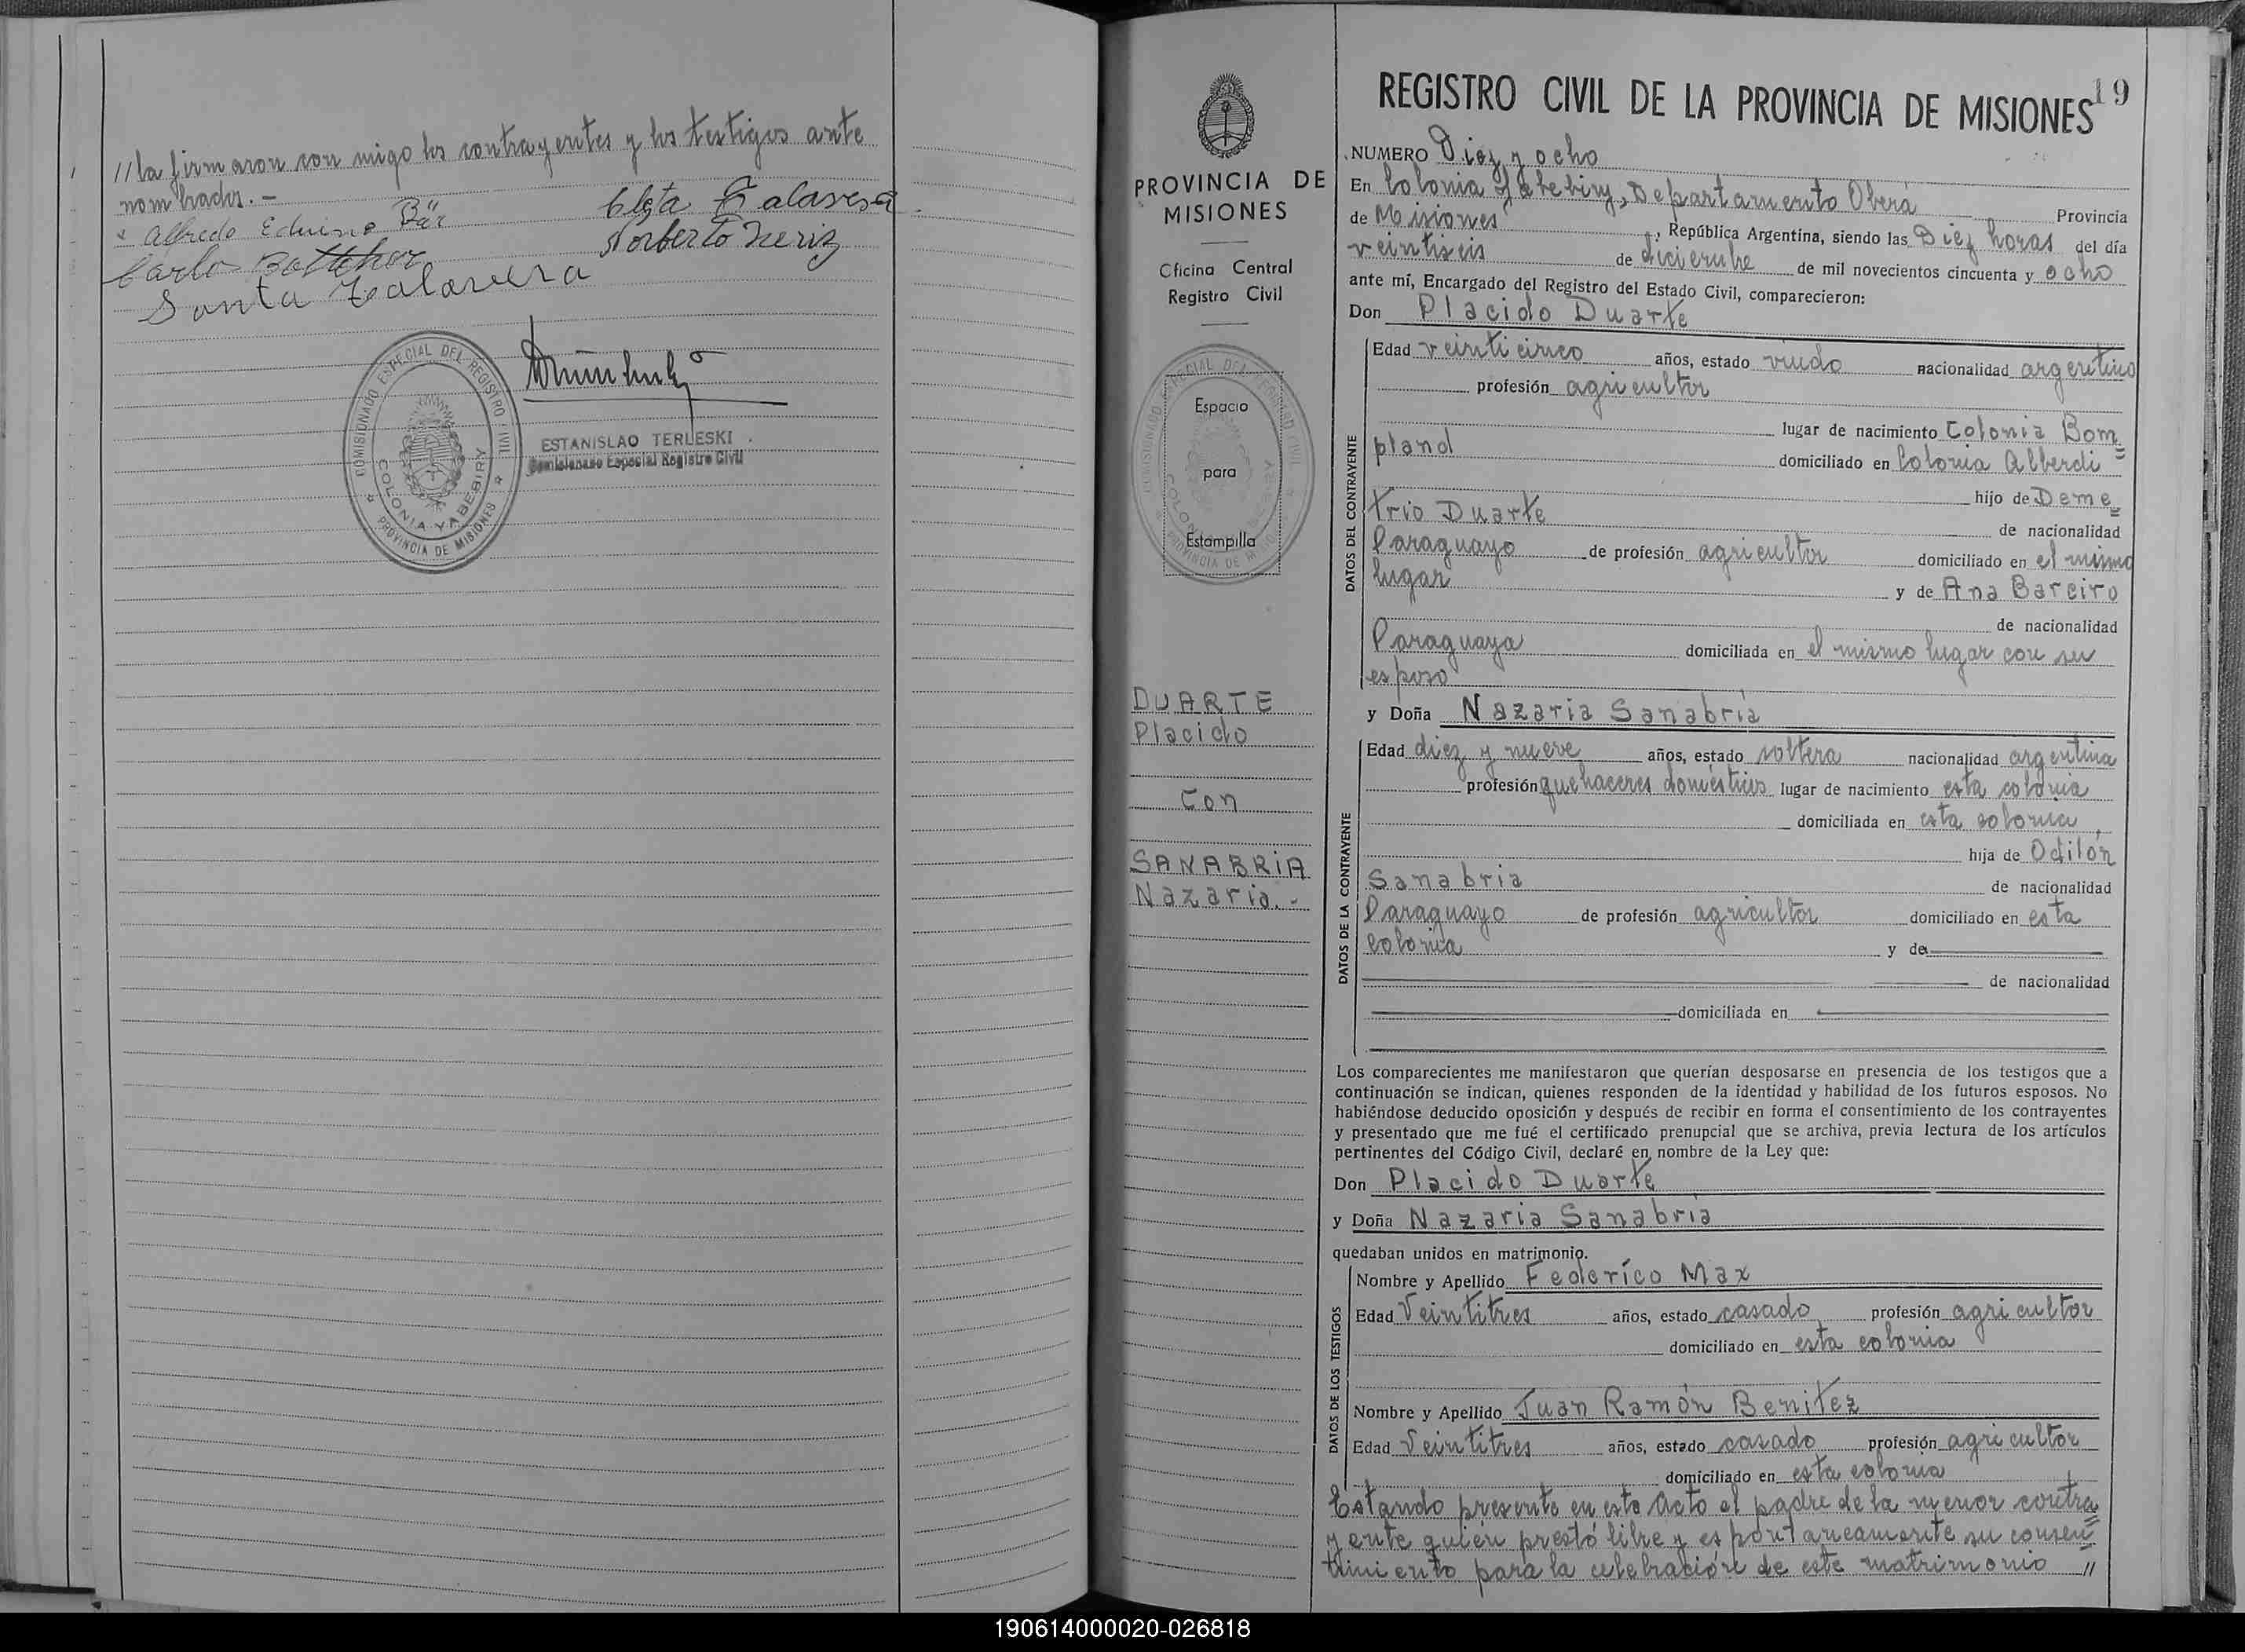 //la firmaron con migo los contrayentes y los testigos ante
nombrados.-
Alfredo Eduino Bär
Cleta Talavera
Carlo Bottcher
Norberto Neriz
Santa Talavera
COMISIONADO ESPECIAL DEL REGISTRO CIVIL
COLONIA YABEBIRY
PROVINCIA DE MISIONES
ESTANISLAO TERLESKI
Comisionado Especial Registro Civil
PROVINCIA DE
MISIONES
Oficina Central
Registro Civil
Espacio
para
Estampilla
DUARTE
Placido
Con
SANABRIA
Nazaria.-
19
REGISTRO CIVIL DE LA PROVINCIA DE MISIONES
NUMERO Diez y ocho
En Colonia Yabebiry, Departamento Oberá Provincia
de Misiones, República Argentina, siendo las Diez horas del día
veintiseis de diciembre de mil novecientos cincuenta y ocho
ante mí, Encargado del Registro del Estado Civil, comparecieron:
Don Placido Duarte
DATOS DEL CONTRAYENTE
Edad veinticinco años, estado viudo nacionalidad argentino
profesión agricultor
lugar de nacimiento Colonia Bom=
pland domiciliado en Colonia Alberdi
hijo de Deme=
trio Duarte de nacionalidad
Paraguayo de profesión agricultor domiciliado en el mismo
lugar y de Ana Bareiro
de nacionalidad
Paraguaya domiciliada en el mismo lugar con su
esposo
y Doña Nazaria Sanabria
DATOS DE LA CONTRAYENTE
Edad diez y nueve años, estado soltera nacionalidad argentina
profesión quehaceres domésticos lugar de nacimiento esta colonia
domiciliada en esta colonia,
hija de Odilón
Sanabria de nacionalidad
Paraguayo de profesión agricultor domiciliado en esta
colonia y de
de nacionalidad
domiciliada en
Los comparecientes me manifestaron que querían desposarse en presencia de los testigos que a
continuación se indican, quienes responden de la identidad y habilidad de los futuros esposos. No
habiéndose deducido oposición y después de recibir en forma el consentimiento de los contrayentes
y presentado que me fué el certificado prenupcial que se archiva, previa lectura de los artículos
pertinentes del Código Civil, declaré en nombre de la Ley que:
Don Placido Duarte
y Doña Nazaria Sanabria
quedaban unidos en matrimonio.
DATOS DE LOS TESTIGOS
Nombre y Apellido Federíco Max
Edad Veintitres años, estado casado profesión agricultor
domiciliado en esta colonia
Nombre y Apellido Juan Ramón Benitez
Edad Veintitres años, estado casado profesión agricultor
domiciliado en esta colonia
Estando presente en este acto el padre de la menor contra=
yente quién prestó libre y espontaneamente su consen=
timiento para la celebración de este matrimonio //
190614000020-026818